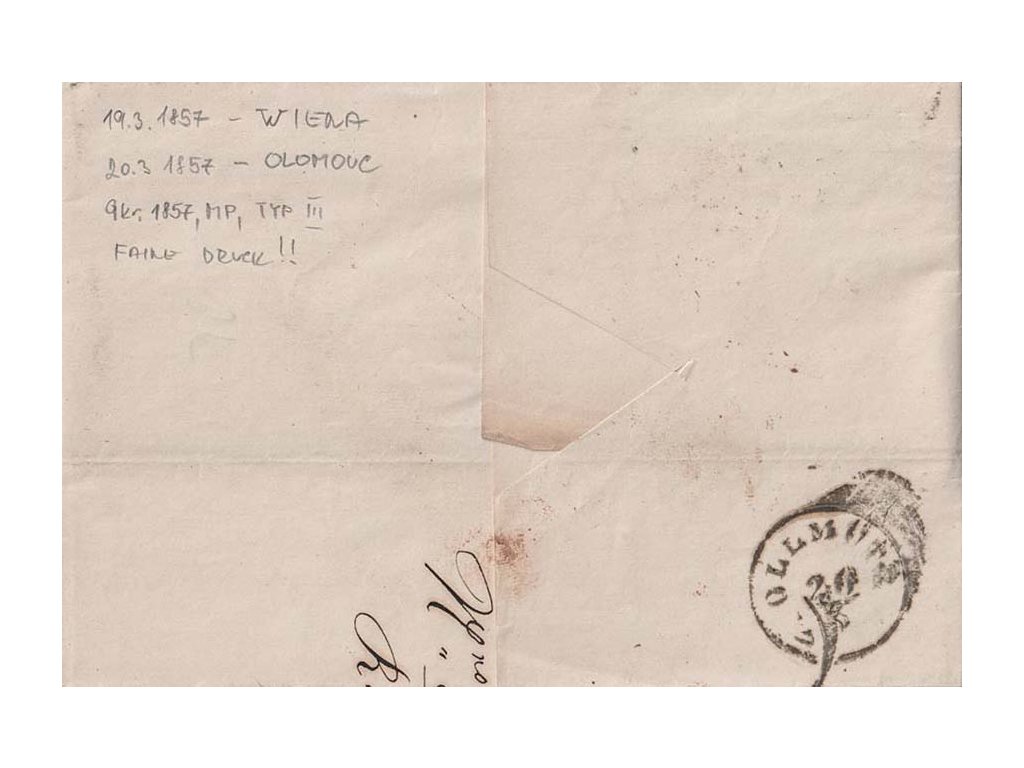 19.3.1857 – WIENA
20.3 1857 – OLOMOUC
9kr. 1857, MP, TYP III
FAINE DRUCK!!
OLLMÜTZ
20